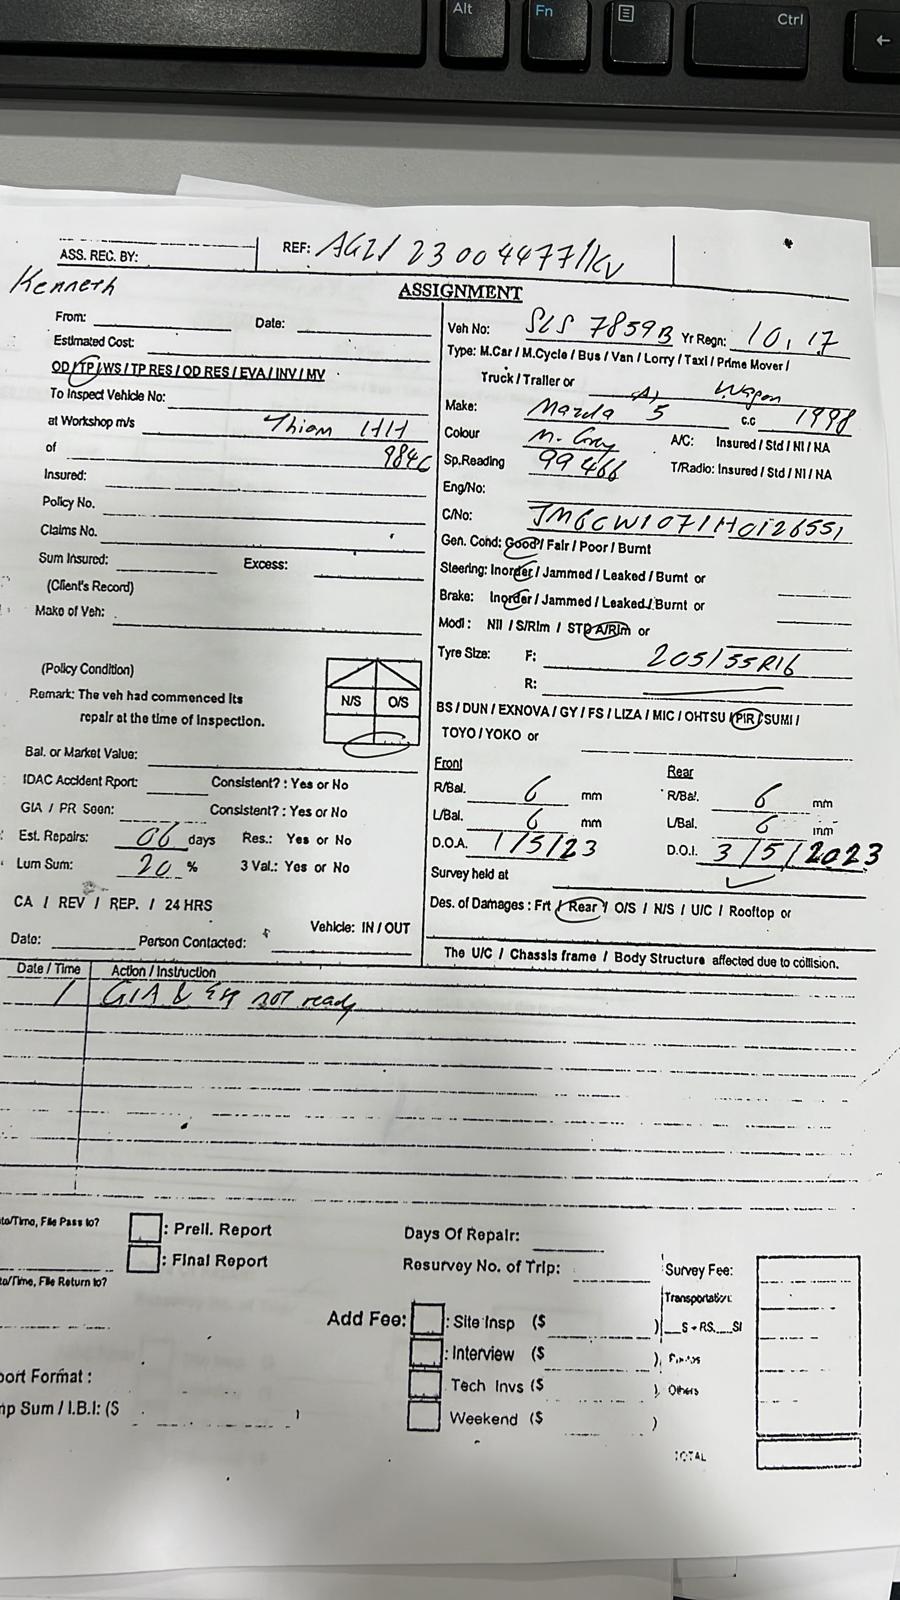 Alt Fn Ctrl
ASS. REC. BY: REF: AG21/ 23004477/KV
Kenneth
ASSIGNMENT
From: Date:
Estimated Cost:
OD / TP / WS / TP RES / OD RES / EVA / INV / MV
To Inspect Vehicle No:
at Workshop m/s Thiam HH
of 984C
Insured:
Policy No.
Claims No.
Sum Insured: Excess:
(Client's Record)
Make of Veh:
(Policy Condition)
Remark: The veh had commenced its
repair at the time of inspection.
N/S O/S
Bal. or Market Value:
IDAC Accident Rport: Consistent? : Yes or No
GIA / PR Seen: Consistent? : Yes or No
Est. Repairs: 06 days Res.: Yes or No
Lum Sum: 20 % 3 Val.: Yes or No
CA / REV / REP. / 24 HRS
Vehicle: IN / OUT
Date: Person Contacted:
Veh No: SLS 7859B Yr Regn: 10, 17
Type: M.Car / M.Cycle / Bus / Van / Lorry / Taxi / Prime Mover /
Truck / Trailer or Wagon
Make: Mazda 5 C.C 1998
Colour M. Grey A/C: Insured / Std / NI / NA
Sp.Reading 99466 T/Radio: Insured / Std / NI / NA
Eng/No:
C/No: JM6CW1071H0126551
Gen. Cond: Good / Fair / Poor / Burnt
Steering: Inorder / Jammed / Leaked / Burnt or
Brake: Inorder / Jammed / Leaked / Burnt or
Modi: Nil / S/Rim / STD A/Rim or
Tyre Size: F: 205/55R16
R:
BS / DUN / EXNOVA / GY / FS / LIZA / MIC / OHTSU / PIR / SUMI /
TOYO / YOKO or
Front Rear
R/Bal. 6 mm R/Bal. 6 mm
L/Bal. 6 mm L/Bal. 6 mm
D.O.A. 1/5/23 D.O.I. 3/5/2023
Survey held at
Des. of Damages : Frt / Rear / O/S / N/S / U/C / Rooftop or
The U/C / Chassis frame / Body Structure affected due to collision.
Date / Time Action / Instruction
GIA & not ready
File Pass to?
: Prell. Report
: Final Report
File Return to?
Days Of Repair:
Resurvey No. of Trip:
Survey Fee:
Transportation:
Add Fee: : Site Insp ($ ) S + RS SI
: Interview ($ )
Tech Invs ($ ) Others
Weekend ($ )
Format :
Sum / I.B.I: ($ )
TOTAL